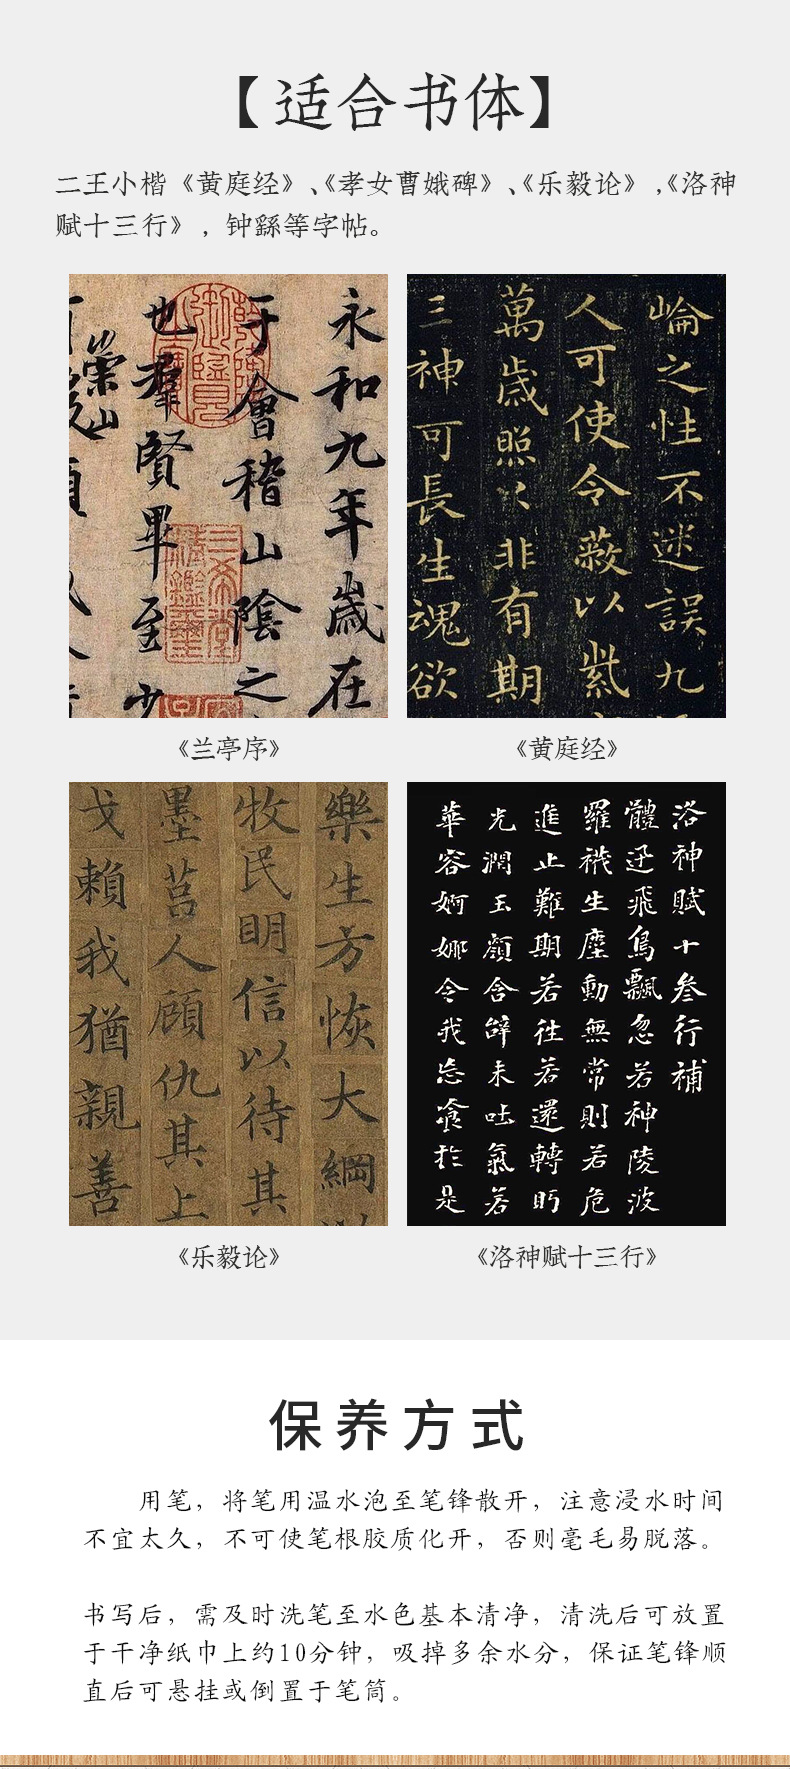 【适合书体】
二王小楷《黄庭经》、《孝女曹娥碑》、《乐毅论》,《洛神
赋十三行》,钟繇等字帖。
永和九年歲在
于會稽山陰之
也羣賢畢至少
崇山
《兰亭序》
崘之性不迷誤九
人可使令蔽以紫
萬歲照以非有期
三神可長生魂欲
《黄庭经》
樂生方恢大綱以
牧民明信以待其
墨莒人顧仇其上
戈賴我猶親善
《乐毅论》
洛神賦十叁行補
體迅飛鳥飄忽若神陵波
羅襪生塵動無常則若危
進止難期若往若還轉眄
光潤玉顏含辭未吐氣若
華容婀娜令我忘飡於是
《洛神赋十三行》
保养方式
用笔，将笔用温水泡至笔锋散开，注意浸水时间
不宜太久，不可使笔根胶质化开，否则毫毛易脱落。
书写后，需及时洗笔至水色基本清净，清洗后可放置
于干净纸巾上约10分钟，吸掉多余水分，保证笔锋顺
直后可悬挂或倒置于笔筒。